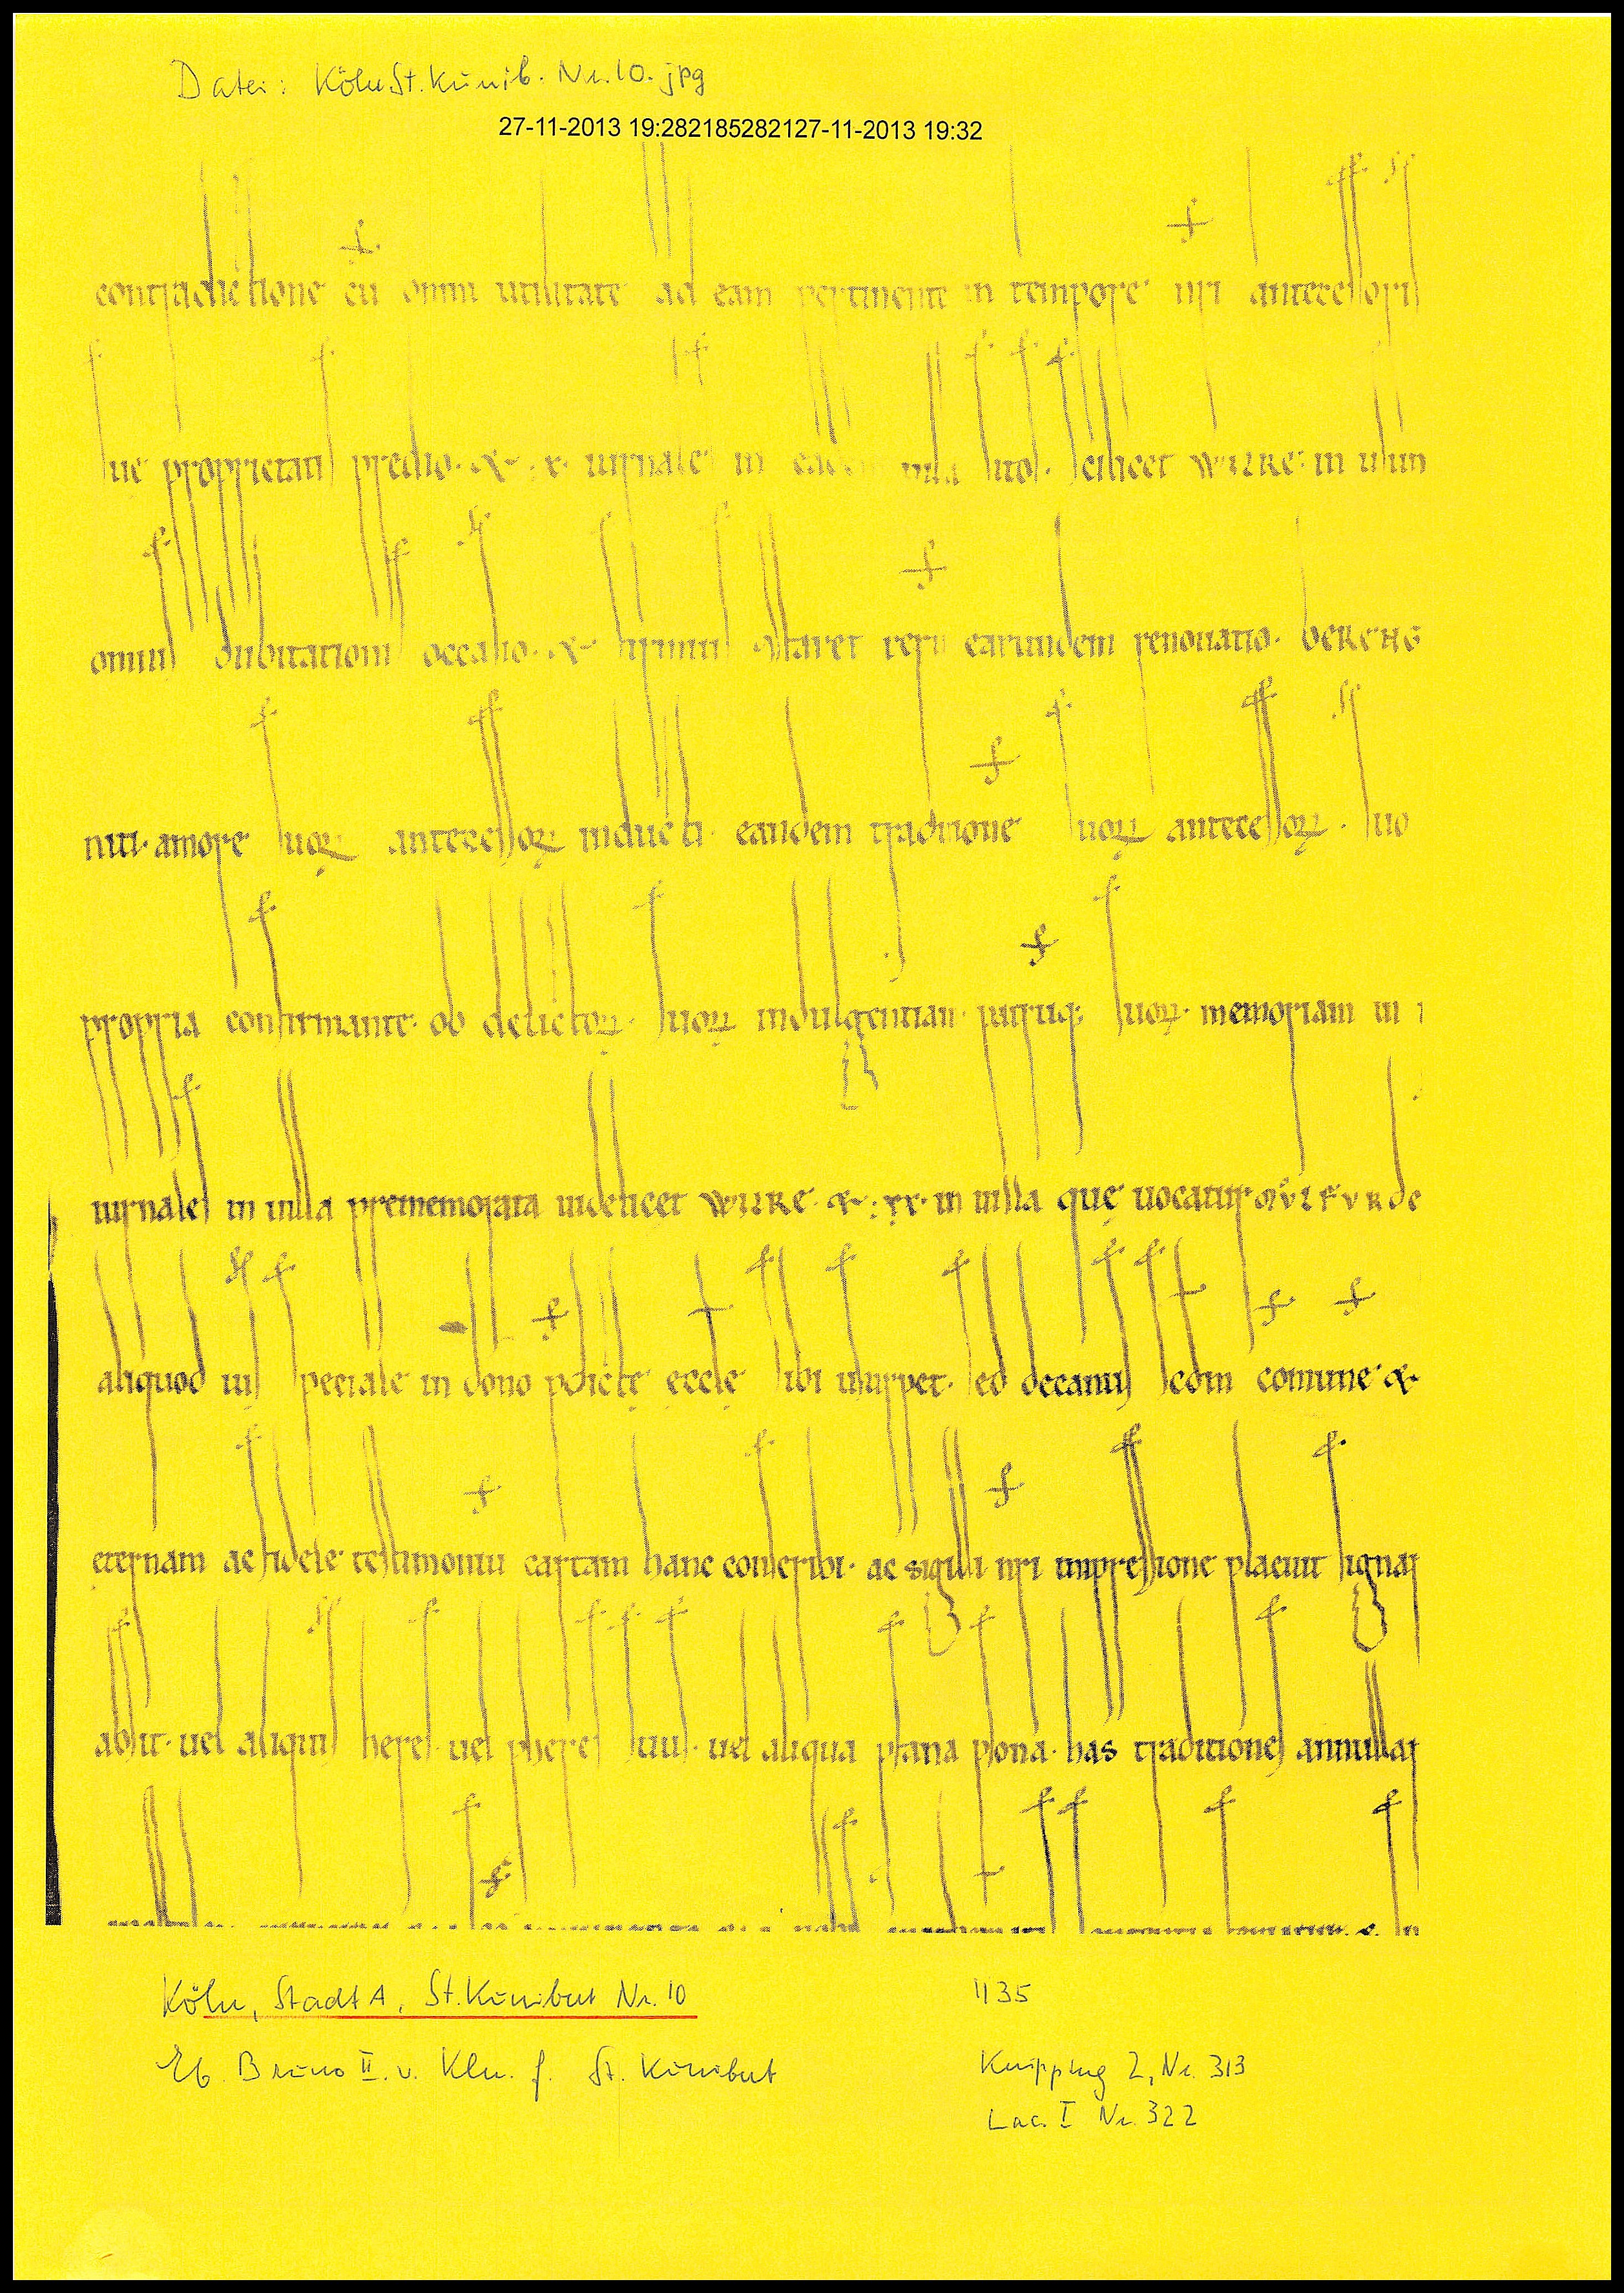 Datei: KölnSt.Kunib. Nr. 10. jpg
27-11-2013 19:282185282127-11-2013 19:32
contradictione cū omni utilitate ad eam pertinente in tempore nri antecessoris
sue proprietatis predio. & . x. iurnales in eadem uilla sitos. scilicet WIJRE. in usum
omnis dubitationis occasio. & firmius 9staret rerū earundem renouatio. BERENG
niti. amore suoꝝ antecessoꝝ inducti. eandem traditionē suoꝝ antecessoꝝ. suo
propria confirmante. ob delictoꝝ suoꝝ indulgentiam patruūq; suoꝝ. memoriam in
iurnales in uilla prememorata uidelicet WIJRE. & . xx. in uilla quę uocatur MVLFVRDE
aliquod ius speciale in dono pdictę ęcclę sibi usurpet. sed decanus scdm comunē &
eternam ac fidele testimoniū cartam hanc conscribi. ac sigilli nri impressione placuit signar
absit. uel aliquis heres. uel pheres suus. uel aliqua prana psona. has traditiones annullar
Köln, StadtA, St. Kunibert Nr. 10
1135
Eb. Bruno II. v. Kln. f. St. Kunibert
Knipping 2, Nr. 313
Lac. I Nr. 322